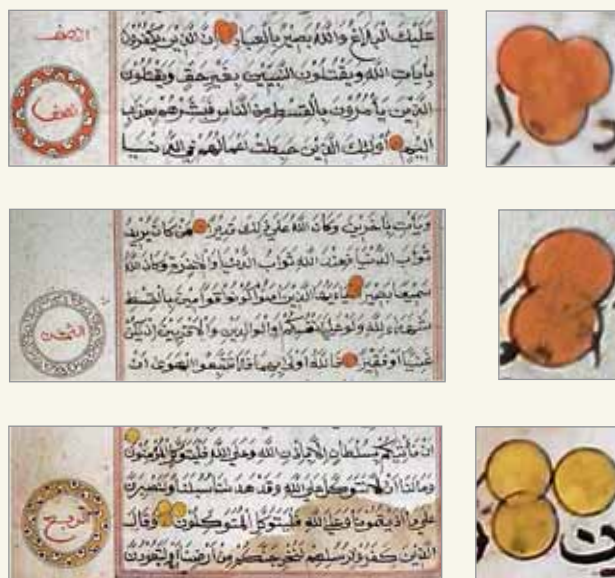 النصف
نصف
عليك البلاغ والله بصير بالعباد ان الذين يكفرون
بآيات الله ويقتلون النبيين بغير حق ويقتلون
الذين يأمرون بالقسط من الناس فبشرهم بعذاب
اليم أولئك الذين حبطت اعمالهم في الدنيا
الثمن
ويأت بآخرين وكان الله على ذلك قديرا من كان يريد
ثواب الدنيا فعند الله ثواب الدنيا والآخرة وكان الله
سميعا بصيرا يا أيها الذين آمنوا كونوا قوامين بالقسط
شهداء لله ولو على أنفسكم أو الوالدين والاقربين إن يكن
غنيا أو فقيرا فالله أولى بهما فلا تتبعوا الهوى ان
الربع
ان نأتيكم بسلطان إلا بإذن الله وعلى الله فليتوكل المؤمنون
وما لنا ألا نتوكل على الله وقد هدانا سبلنا ولنصبرن
على ما آذيتمونا وعلى الله فليتوكل المتوكلون وقال
الذين كفروا لرسلهم لنخرجنكم من أرضنا أو لتعودن